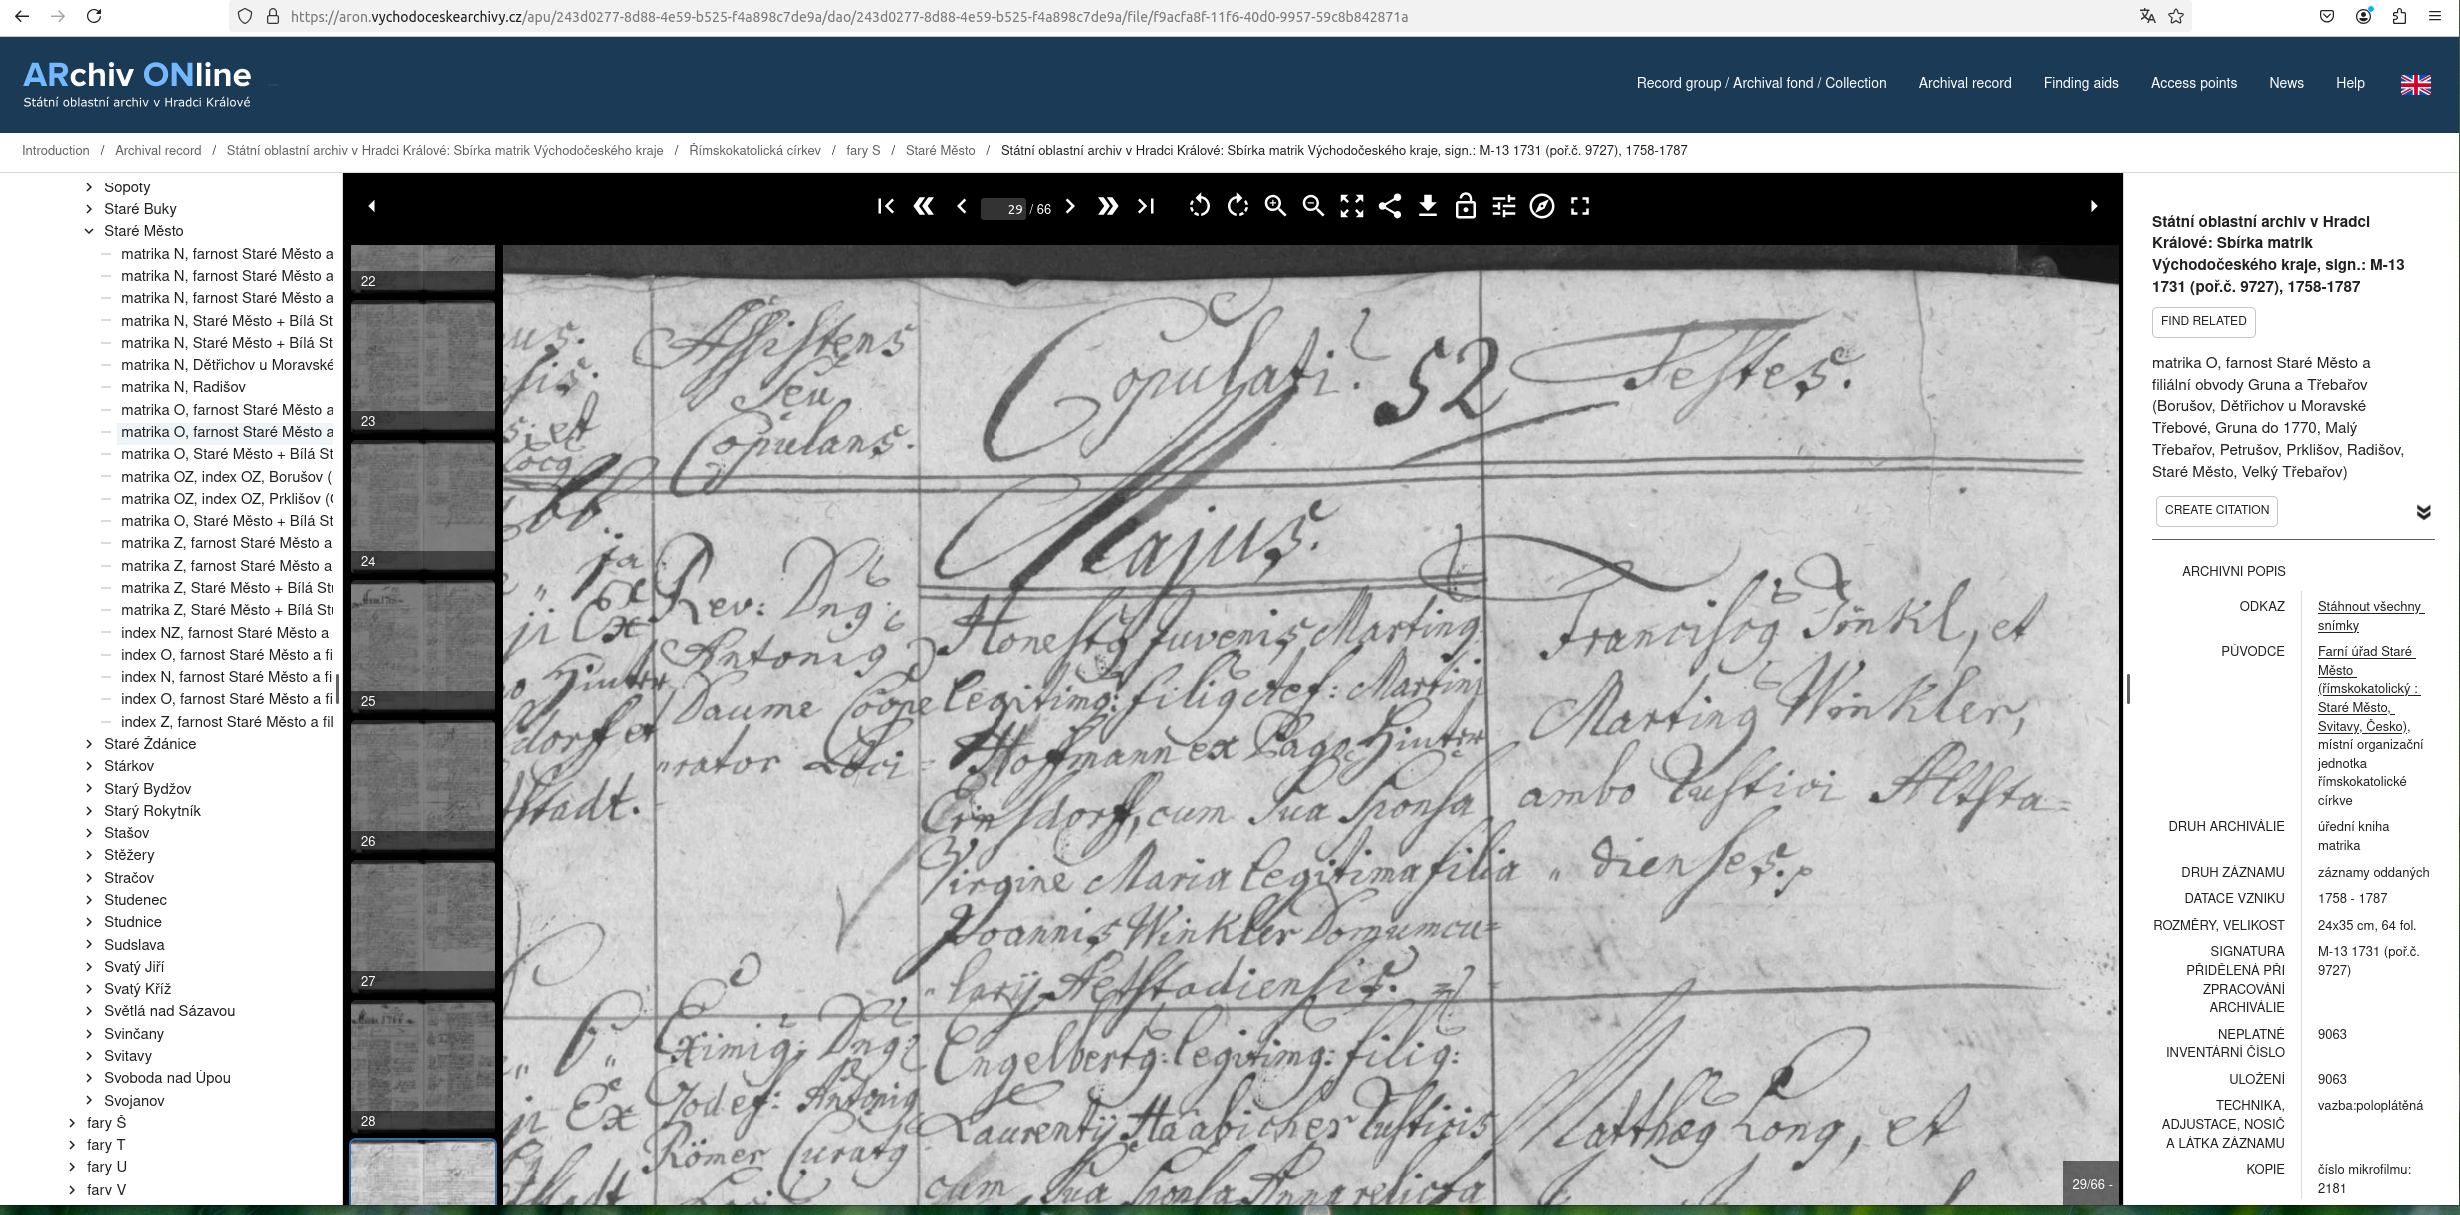 https://aron.vychodoceskearchivy.cz/apu/243d0277-8d88-4e59-b525-f4a898c7de9a/dao/243d0277-8d88-4e59-b525-f4a898c7de9a/file/f9acfa8f-11f6-40d0-9957-59c8b842871a
ARchiv ONline
Státní oblastní archiv v Hradci Králové
Record group / Archival fond / Collection
Archival record
Finding aids
Access points
News
Help
Introduction / Archival record / Státní oblastní archiv v Hradci Králové: Sbírka matrik Východočeského kraje / Římskokatolická církev / fary S / Staré Město / Státní oblastní archiv v Hradci Králové: Sbírka matrik Východočeského kraje, sign.: M-13 1731 (poř.č. 9727), 1758-1787
Sopoty
Staré Buky
Staré Město
matrika N, farnost Staré Město a
matrika N, farnost Staré Město a
matrika N, farnost Staré Město a
matrika N, Staré Město + Bílá St
matrika N, Staré Město + Bílá St
matrika N, Dětřichov u Moravské
matrika N, Radišov
matrika O, farnost Staré Město a
matrika O, farnost Staré Město a
matrika O, Staré Město + Bílá St
matrika OZ, index OZ, Borušov (
matrika OZ, index OZ, Prklišov (
matrika O, Staré Město + Bílá St
matrika Z, farnost Staré Město a
matrika Z, farnost Staré Město a
matrika Z, Staré Město + Bílá Stu
matrika Z, Staré Město + Bílá Stu
index NZ, farnost Staré Město a
index O, farnost Staré Město a fi
index N, farnost Staré Město a fi
index O, farnost Staré Město a fi
index Z, farnost Staré Město a fil
Staré Ždánice
Stárkov
Starý Bydžov
Starý Rokytník
Stašov
Stěžery
Stračov
Studenec
Studnice
Sudslava
Svatý Jiří
Svatý Kříž
Světlá nad Sázavou
Svinčany
Svitavy
Svoboda nad Úpou
Svojanov
fary Š
fary T
fary U
fary V
29 / 66
22
23
24
25
26
27
28
Assistens
Seu
Copulans.
Rev: Dng
Antonig
Daume Coope
rator Loci
Eximig: Dng
Josef: Antonig
Römer Curatg
Copulati. 52
Majus.
Honestg Juvenis Marting
legitimg: filig def: Martini
Hoffmann ex Pago Hinter
Ernsdorf, cum Sua Sponsa
Virgine Maria legitima filia
Joannis Winkler Domumcu=
larij Altstadiensis.
Engelbertg: legitimg: filig:
Laurentij Haabicher Rustici
cum Sua Sponsa Anna relicta
Testes.
Franciscg Tönkl, et
Marting Winkler,
ambo Rustici Altsta=
dienses.
Matthæg Long, et
29/66 -
Státní oblastní archiv v Hradci
Králové: Sbírka matrik
Východočeského kraje, sign.: M-13
1731 (poř.č. 9727), 1758-1787
FIND RELATED
matrika O, farnost Staré Město a
filiální obvody Gruna a Třebařov
(Borušov, Dětřichov u Moravské
Třebové, Gruna do 1770, Malý
Třebařov, Petrušov, Prklišov, Radišov,
Staré Město, Velký Třebařov)
CREATE CITATION
ARCHIVNI POPIS
ODKAZ
Stáhnout všechny
snímky
PŮVODCE
Farní úřad Staré
Město
(římskokatolický :
Staré Město,
Svitavy, Česko),
místní organizační
jednotka
římskokatolické
církve
DRUH ARCHIVÁLIE
úřední kniha
matrika
DRUH ZÁZNAMU
záznamy oddaných
DATACE VZNIKU
1758 - 1787
ROZMĚRY, VELIKOST
24x35 cm, 64 fol.
SIGNATURA
PŘIDĚLENÁ PŘI
ZPRACOVÁNÍ
ARCHIVÁLIE
M-13 1731 (poř.č.
9727)
NEPLATNÉ
INVENTÁRNÍ ČÍSLO
9063
ULOŽENÍ
9063
TECHNIKA,
ADJUSTACE, NOSIČ
A LÁTKA ZÁZNAMU
vazba:poloplátěná
KOPIE
číslo mikrofilmu:
2181